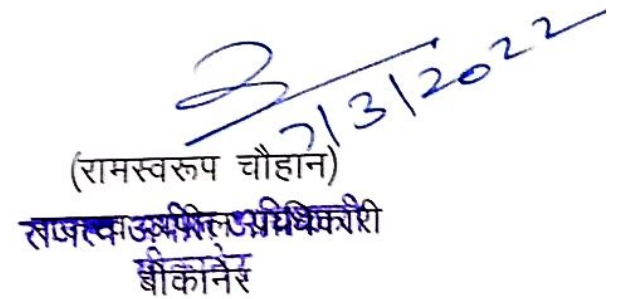 7/3/2022
(रामस्वरूप चौहान)
राजस्व अपील अधिकारी
बीकानेर